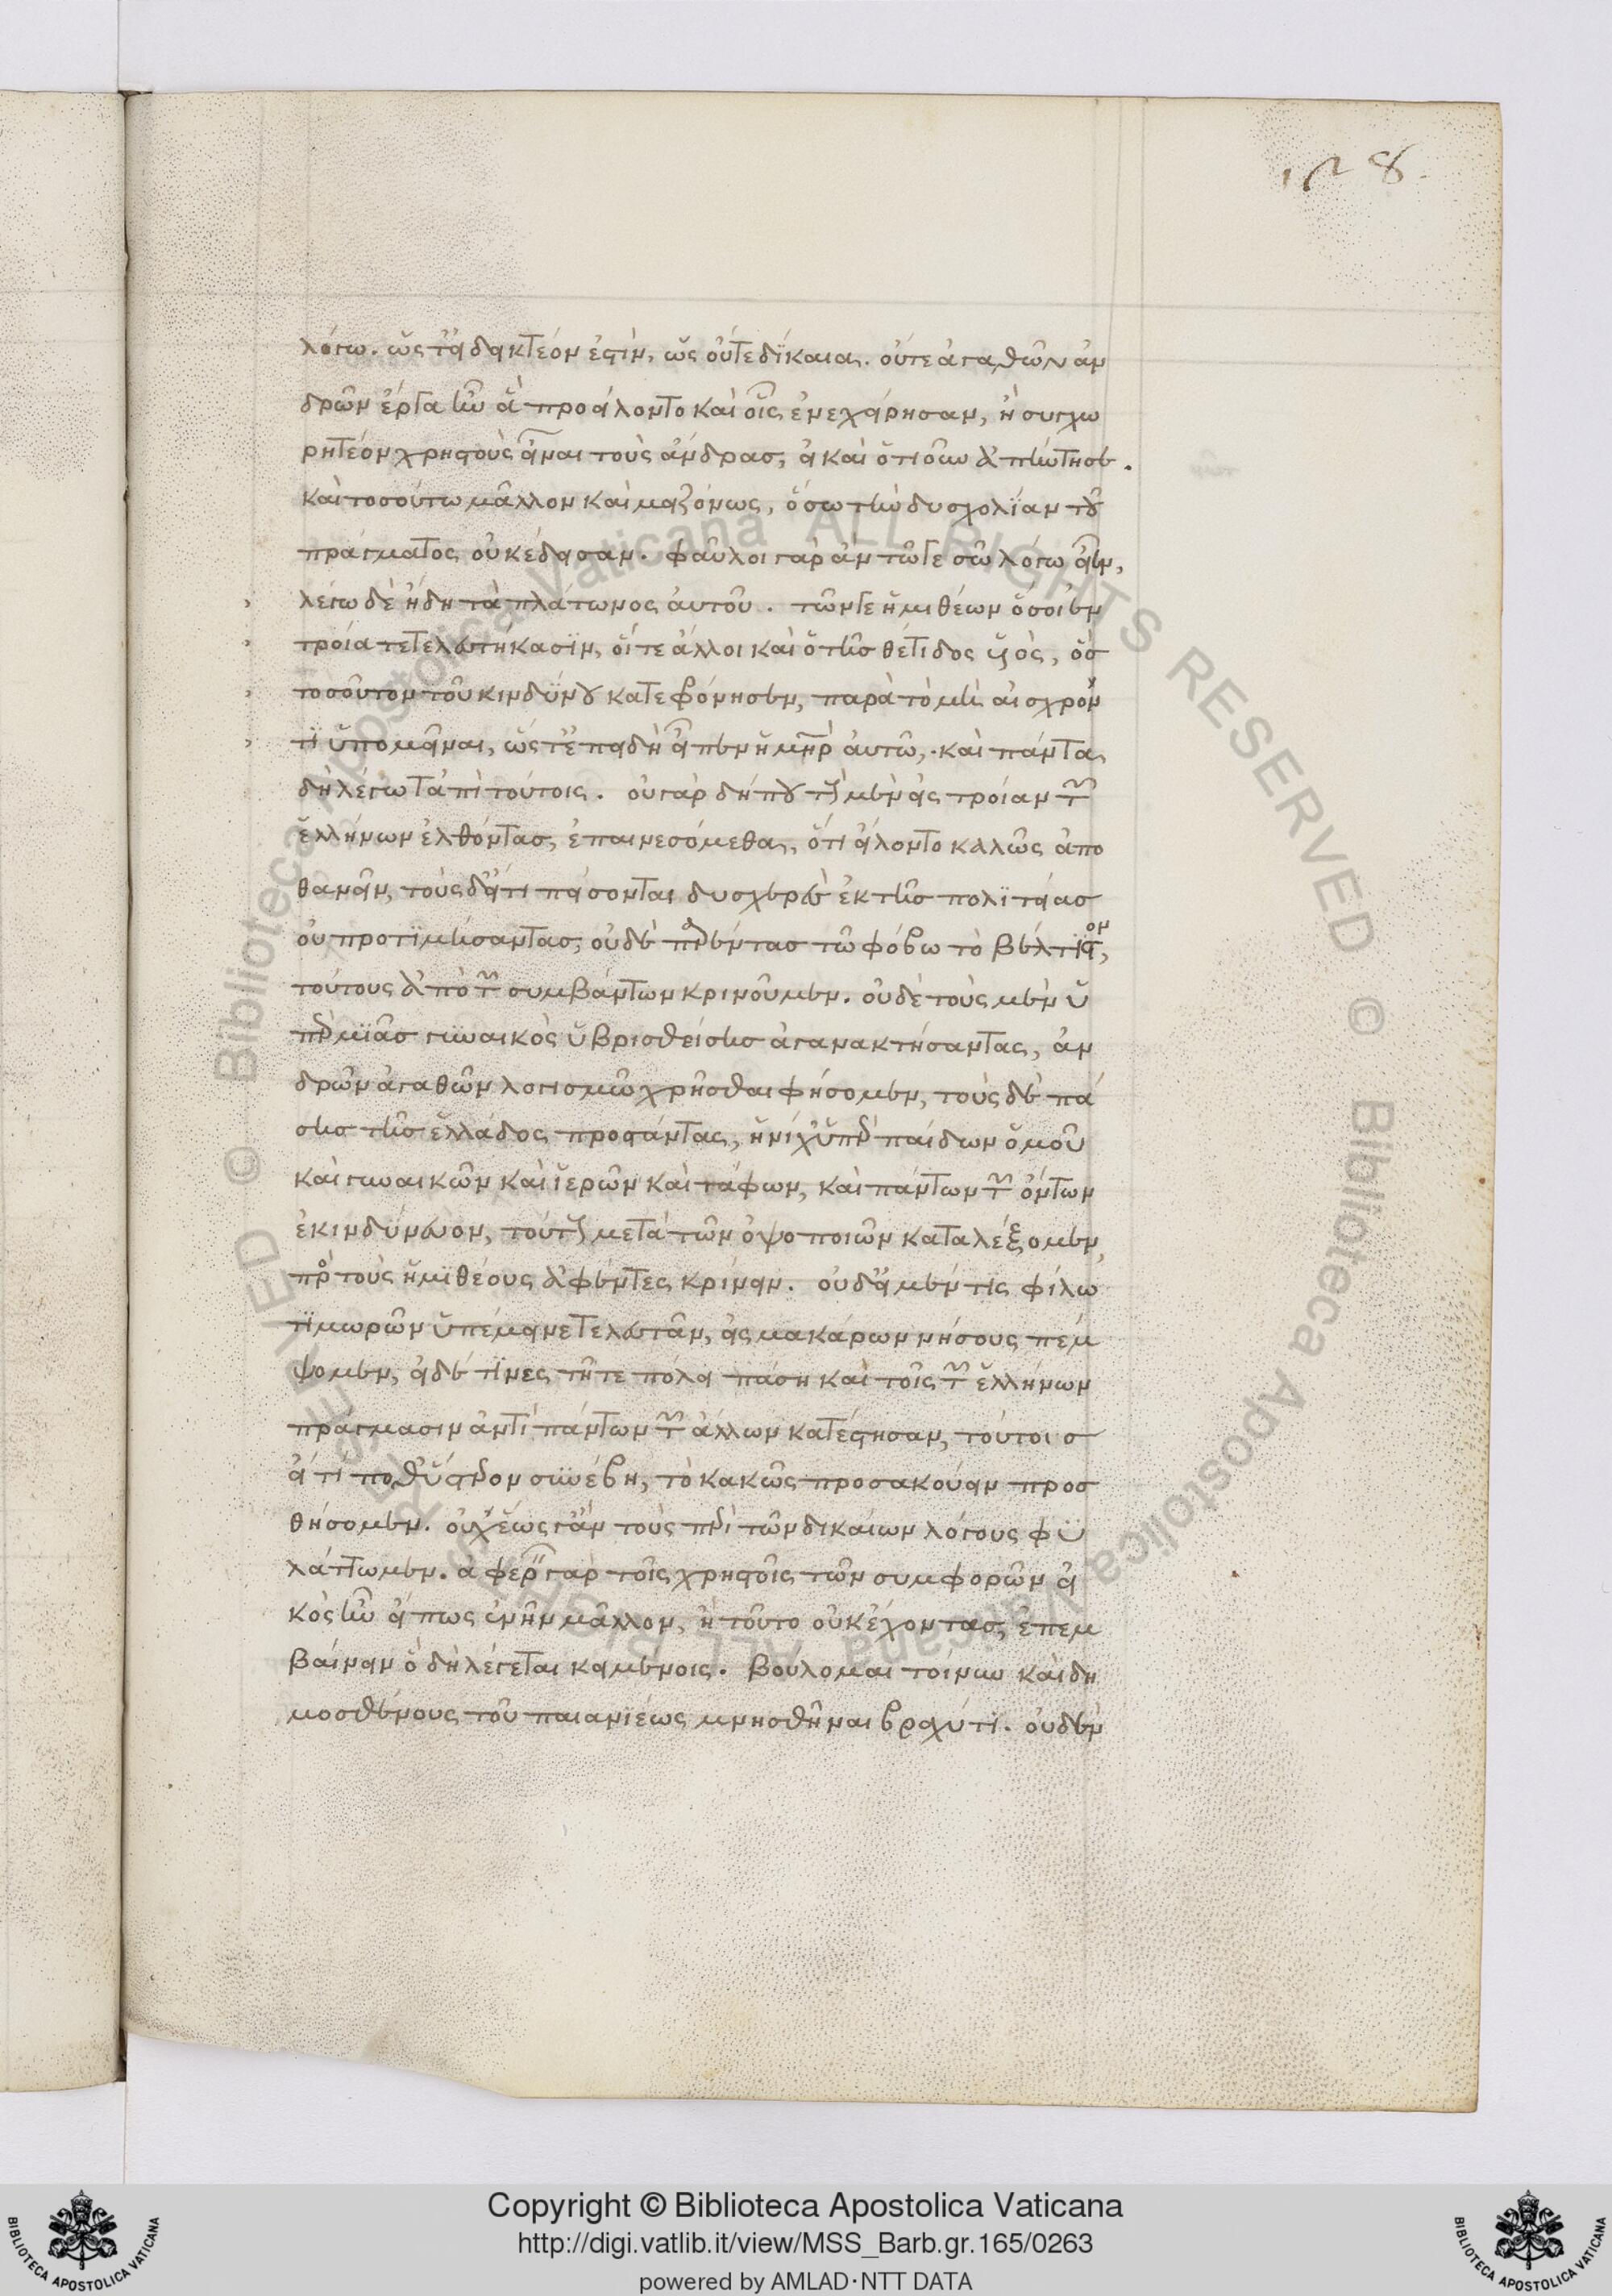 128.
λόγω. ὥστἢ δεικτέον ἐστὶν, ὡς οὔτε δίκαια. οὔτε ἀγαθῶν ἀν
δρῶν ἔργα ἦν ἃ προείλοντο καὶ οἷς ἐνεχείρησαν, ἢ συγχω
ρητέον χρηστοὺς εἶναι τοὺς ἄνδρας, εἰ καὶ ὁτιοῦν ἀπήντησε.
καὶ τοσούτω μᾶλλον καὶ μειζόνως, ὅσω τὴν δυσχολίαν τοῦ
πράγματος οὐκ ἔδεισαν. φαῦλοι γὰρ ἂν τῶγε σῶ λόγω εἶεν,
λέγω δὲ ἤδη τὰ πλάτωνος αὐτοῦ. τῶνγε ἡμιθέων ὅσοι ἐν
τροία τετελευτήκασϊν, οἵ τε ἄλλοι καὶ ὁ τῆς θέτιδος υἱὸς, ὃς
τοσοῦτον τοῦ κινδύνου κατεφρόνησεν, παρὰ τὸ μὴ αἰσχρόν
τϊ ὑπομεῖναι, ὥστ' ἐπειδὴ εἶπεν ἡ μηρ αὐτῶ, καὶ πάντα
δὴ λέγω τἀπὶ τούτοις. οὐ γὰρ δήπου τοὺς μὲν εἰς τροίαν τῶν
ἑλλήνων ἐλθόντας, ἐπαινεσόμεθα, ὅτι εἵλοντο καλῶς ἀπο
θανεῖν, τοὺς δ' εἴ τι πείσονται δυσχερὲς ἐκ τῆς πολϊτείας
οὐ προτϊμήσαντας, οὐδὲ προέντας τῶ φόβω τὸ βέλτϊστον,
τούτους ἀπὸ τῶν συμβάντων κρινοῦμεν. οὐδὲ τοὺς μὲν ὑ
πὲρ μϊᾶς γυναικὸς ὑβρισθείσης ἀγανακτήσαντας, ἀν
δρῶν ἀγαθῶν λογισμῶ χρῆσθαι φήσομεν, τοὺς δὲ πά
σης τῆς ἑλλάδος προστάντας, ἡνίχ' ὑπὲρ παίδων ὁμοῦ
καὶ γυναικῶν καὶ ἱερῶν καὶ τάφων, καὶ πάντων τῶν ὄντων
ἐκινδύνευον, τούτους μετὰ τῶν ὀψοποιῶν καταλέξομεν,
πρὸς τοὺς ἡμϊθέους ἀφέντες κρίνειν. οὐδ' εἰ μέν τις φίλω
τϊμωρῶν ὑπέμεινε τελευτᾶν, εἰς μακάρων νήσους πέμ
ψομεν, εἰ δέ τϊνες τῆτε πόλει πάση καὶ τοῖς τῶν ἑλλήνων
πράγμασιν ἀντὶ πάντων τῶν ἄλλων κατέστησαν, τούτοις
εἴ τι ποθ' ὕστερον συνέβη, τὸ κακῶς προσακούειν προσ
θήσομεν. οὐχ ἕως γ' ἂν τοὺς περὶ τῶν δικαίων λόγους φϋ
λάττωμεν. ἀφερ γὰρ τοῖς χρηστοῖς τῶν συμφορῶν εἰ
κὸς ἦν εἴ πως ἐνῆν μᾶλλον, ἢ τοῦτο οὐκ ἔχοντας, ἐπεμ
βαίνειν ὃ δὴ λέγεται κειμένοις. βούλομαι τοίνυν καὶ δη
μοσθένους τοῦ παιανϊέως μνησθῆναι βραχύ τϊ. οὐδὲν
Copyright © Biblioteca Apostolica Vaticana
http://digi.vatlib.it/view/MSS_Barb.gr.165/0263
powered by AMLAD·NTT DATA